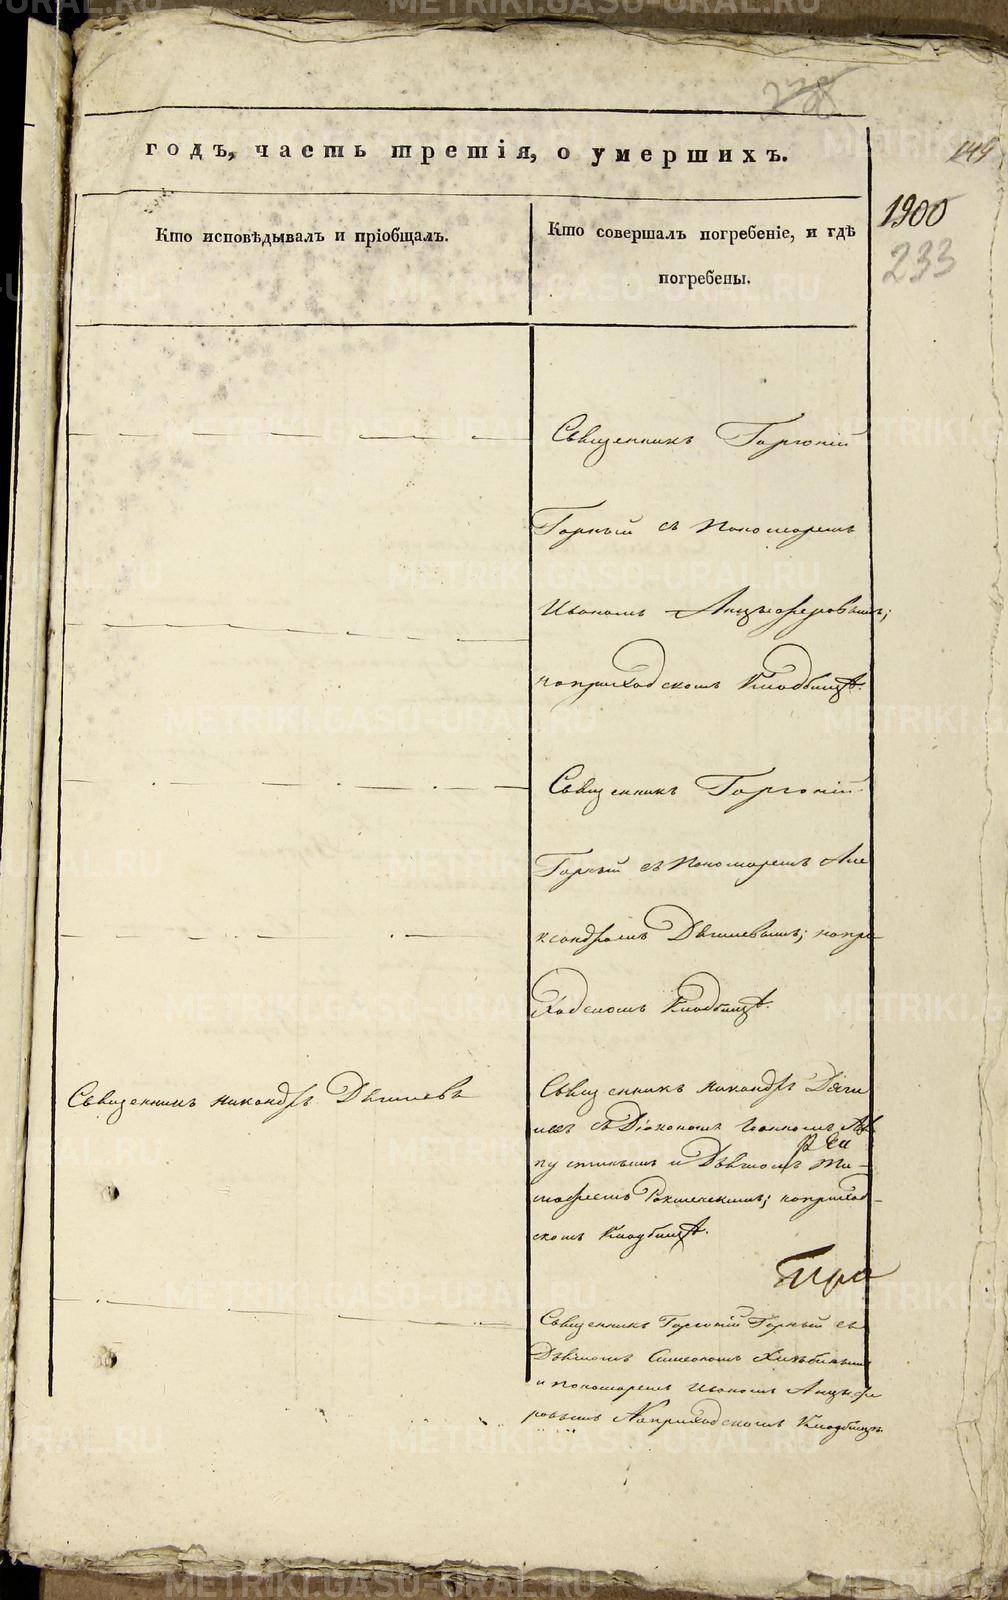 годъ, часть третія, о умершихъ.
149
1900
233
Кто исповѣдывалъ и пріобщалъ.
Кто совершалъ погребеніе, и гдѣ
погребены.
Священникъ Горгоній
Горный съ Пономаремъ
Иваномъ Анцыферовымъ;
на приходскомъ Кладбищѣ.
Священникъ Горгоній
Горный съ Пономаремъ Але
ксандромъ Дягилевымъ; на при
ходскомъ Кладбищѣ.
Священникъ Никандръ Дягилевъ
Священникъ Никандръ Дяги
левъ съ Діакономъ Іоанномъ
и Дьячкомъ Ти-
мофеемъ на приход-
скомъ Кладбищѣ.
Священникъ Горгоній Горный съ
Дьячкомъ Симеономъ Хлѣбинымъ
и пономаремъ Иваномъ Анцыфе
ровымъ На приходскомъ Кладбищѣ.
METRIKI.GASO-URAL.RU